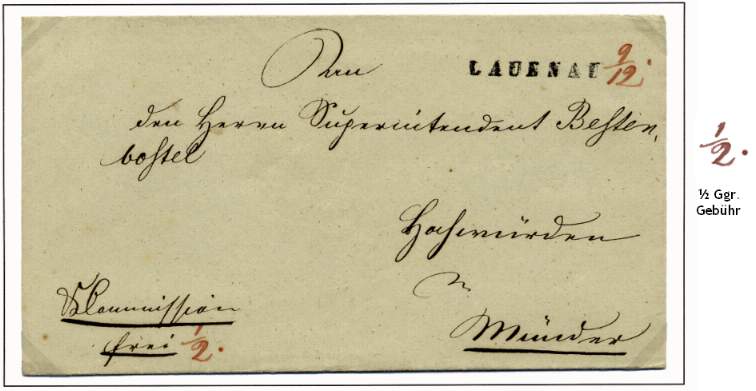 An
LAUENAU 9/12.
den Herrn Superintendent Besten,
bostel
Hochwürden
in
Münder
Commission
frei 1/2.
1/2.
½ Ggr.
Gebühr